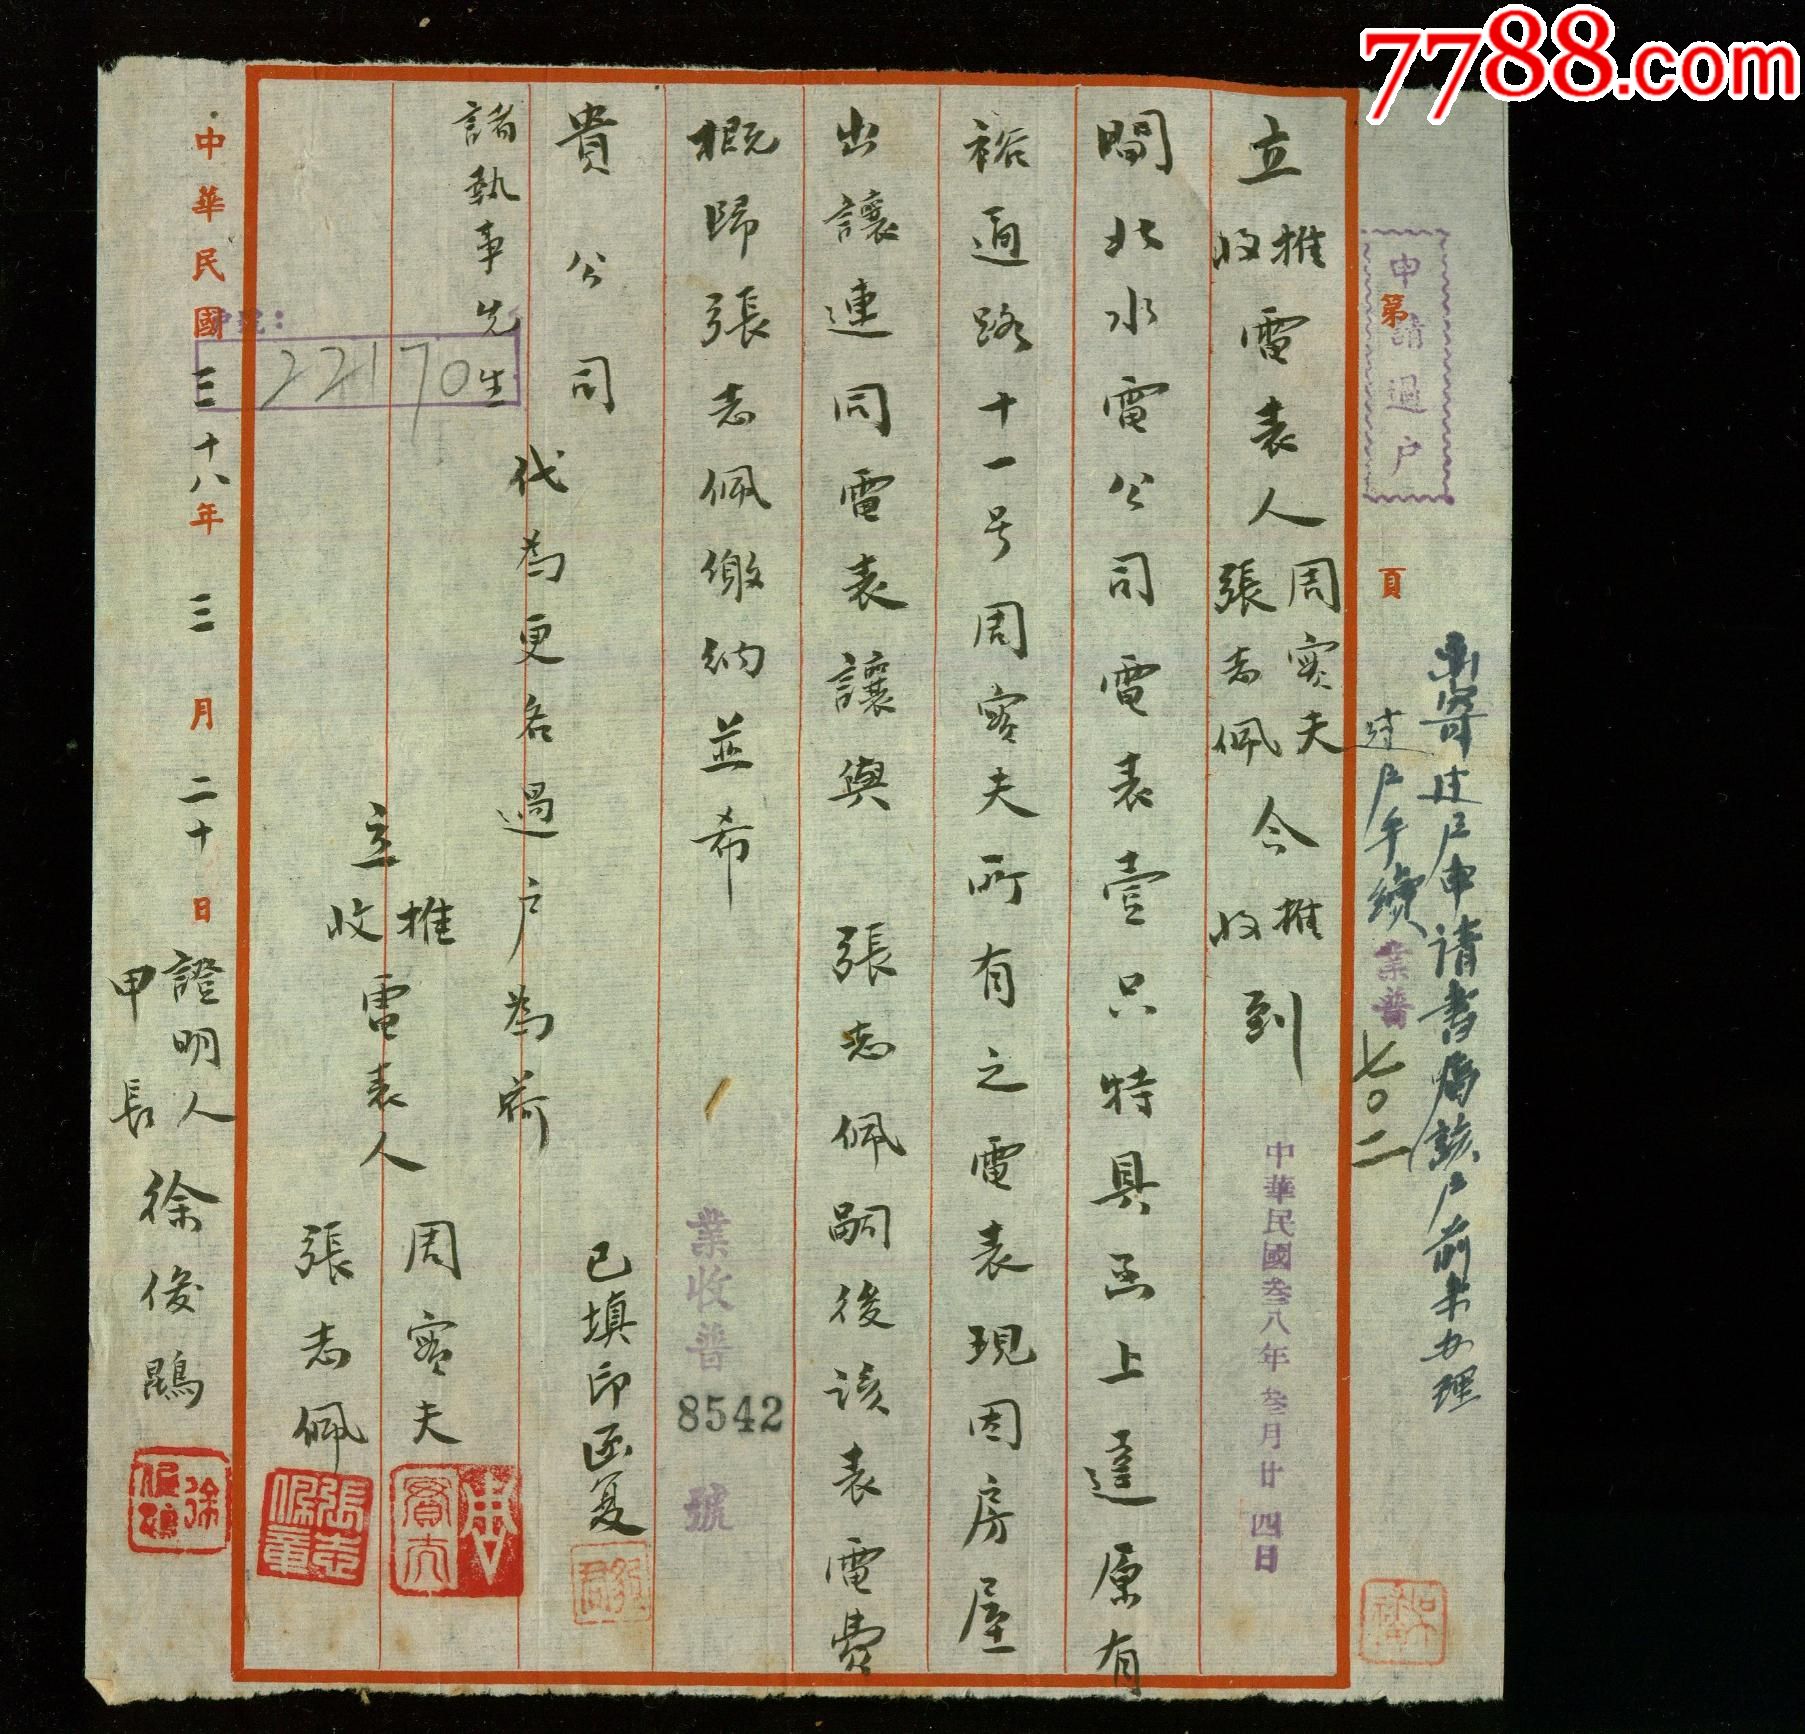 7788.com
申請過戶
第 頁
函寄过户申请书嘱该户前来办理
过户手續
業普七〇二
立推收電表人周賓夫張志佩今推收到
中華民國叁八年叁月廿四日
閘北水電公司電表壹只特具函上達原有
裕通路十一号周賓夫所有之電表現因房屋
出讓連同電表讓與張志佩嗣後該表電費
概歸張志佩繳納並希
業收普8542號
貴公司
已填印函复
諸執事先生
代為更名過户為荷
22170
立推收電表人周賓夫張志佩
中華民國三十八年三月二十日
證明人甲長徐俊鵾